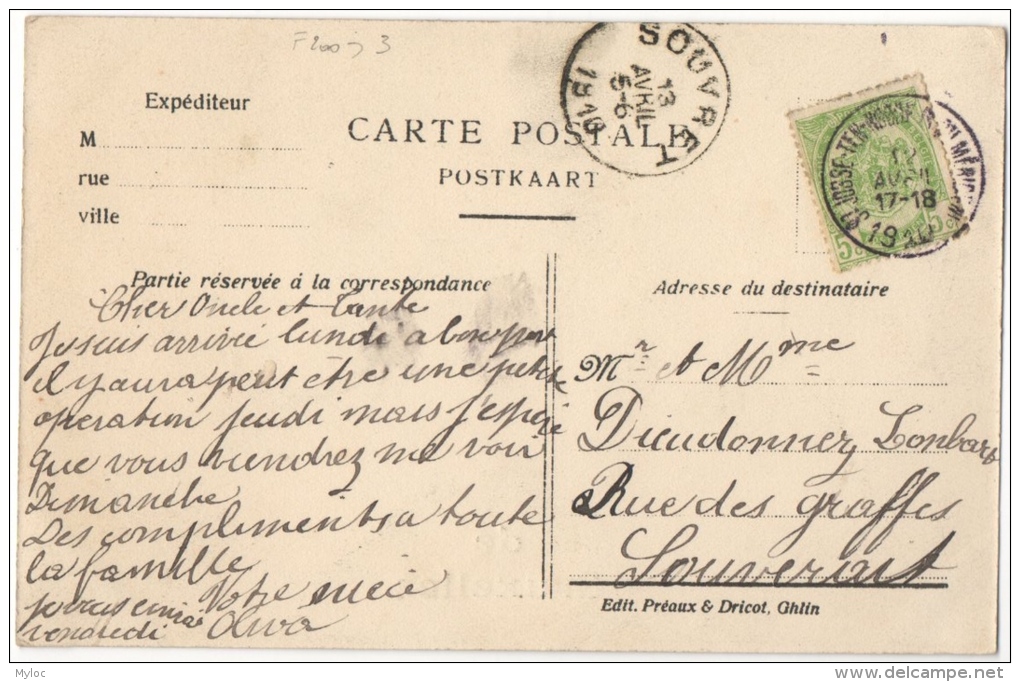 F200, 3
Expéditeur
M
rue
ville
CARTE POSTALE
POSTKAART
SOUVRET
13
AVRIL
5-6
1910
ST JOSSE-TEN-NOODE
12
AVRIL
17-18
19
5
Partie réservée à la correspondance
Adresse du destinataire
Cher Oncle et Tante
Je suis arrivée lundi a bon port
il y aura peut être une petite
operation jeudi mais j'espère
que vous viendrez me voir
Dimanche
Des compliments a toute
la famille
Votre niece
Je vous
vendredi Oliva
Mr et Mme
Dieudonnez Lonbard
Rue des graffes
Souverait
Edit. Préaux & Dricot, Ghlin
Myloc
www.delcampe.net